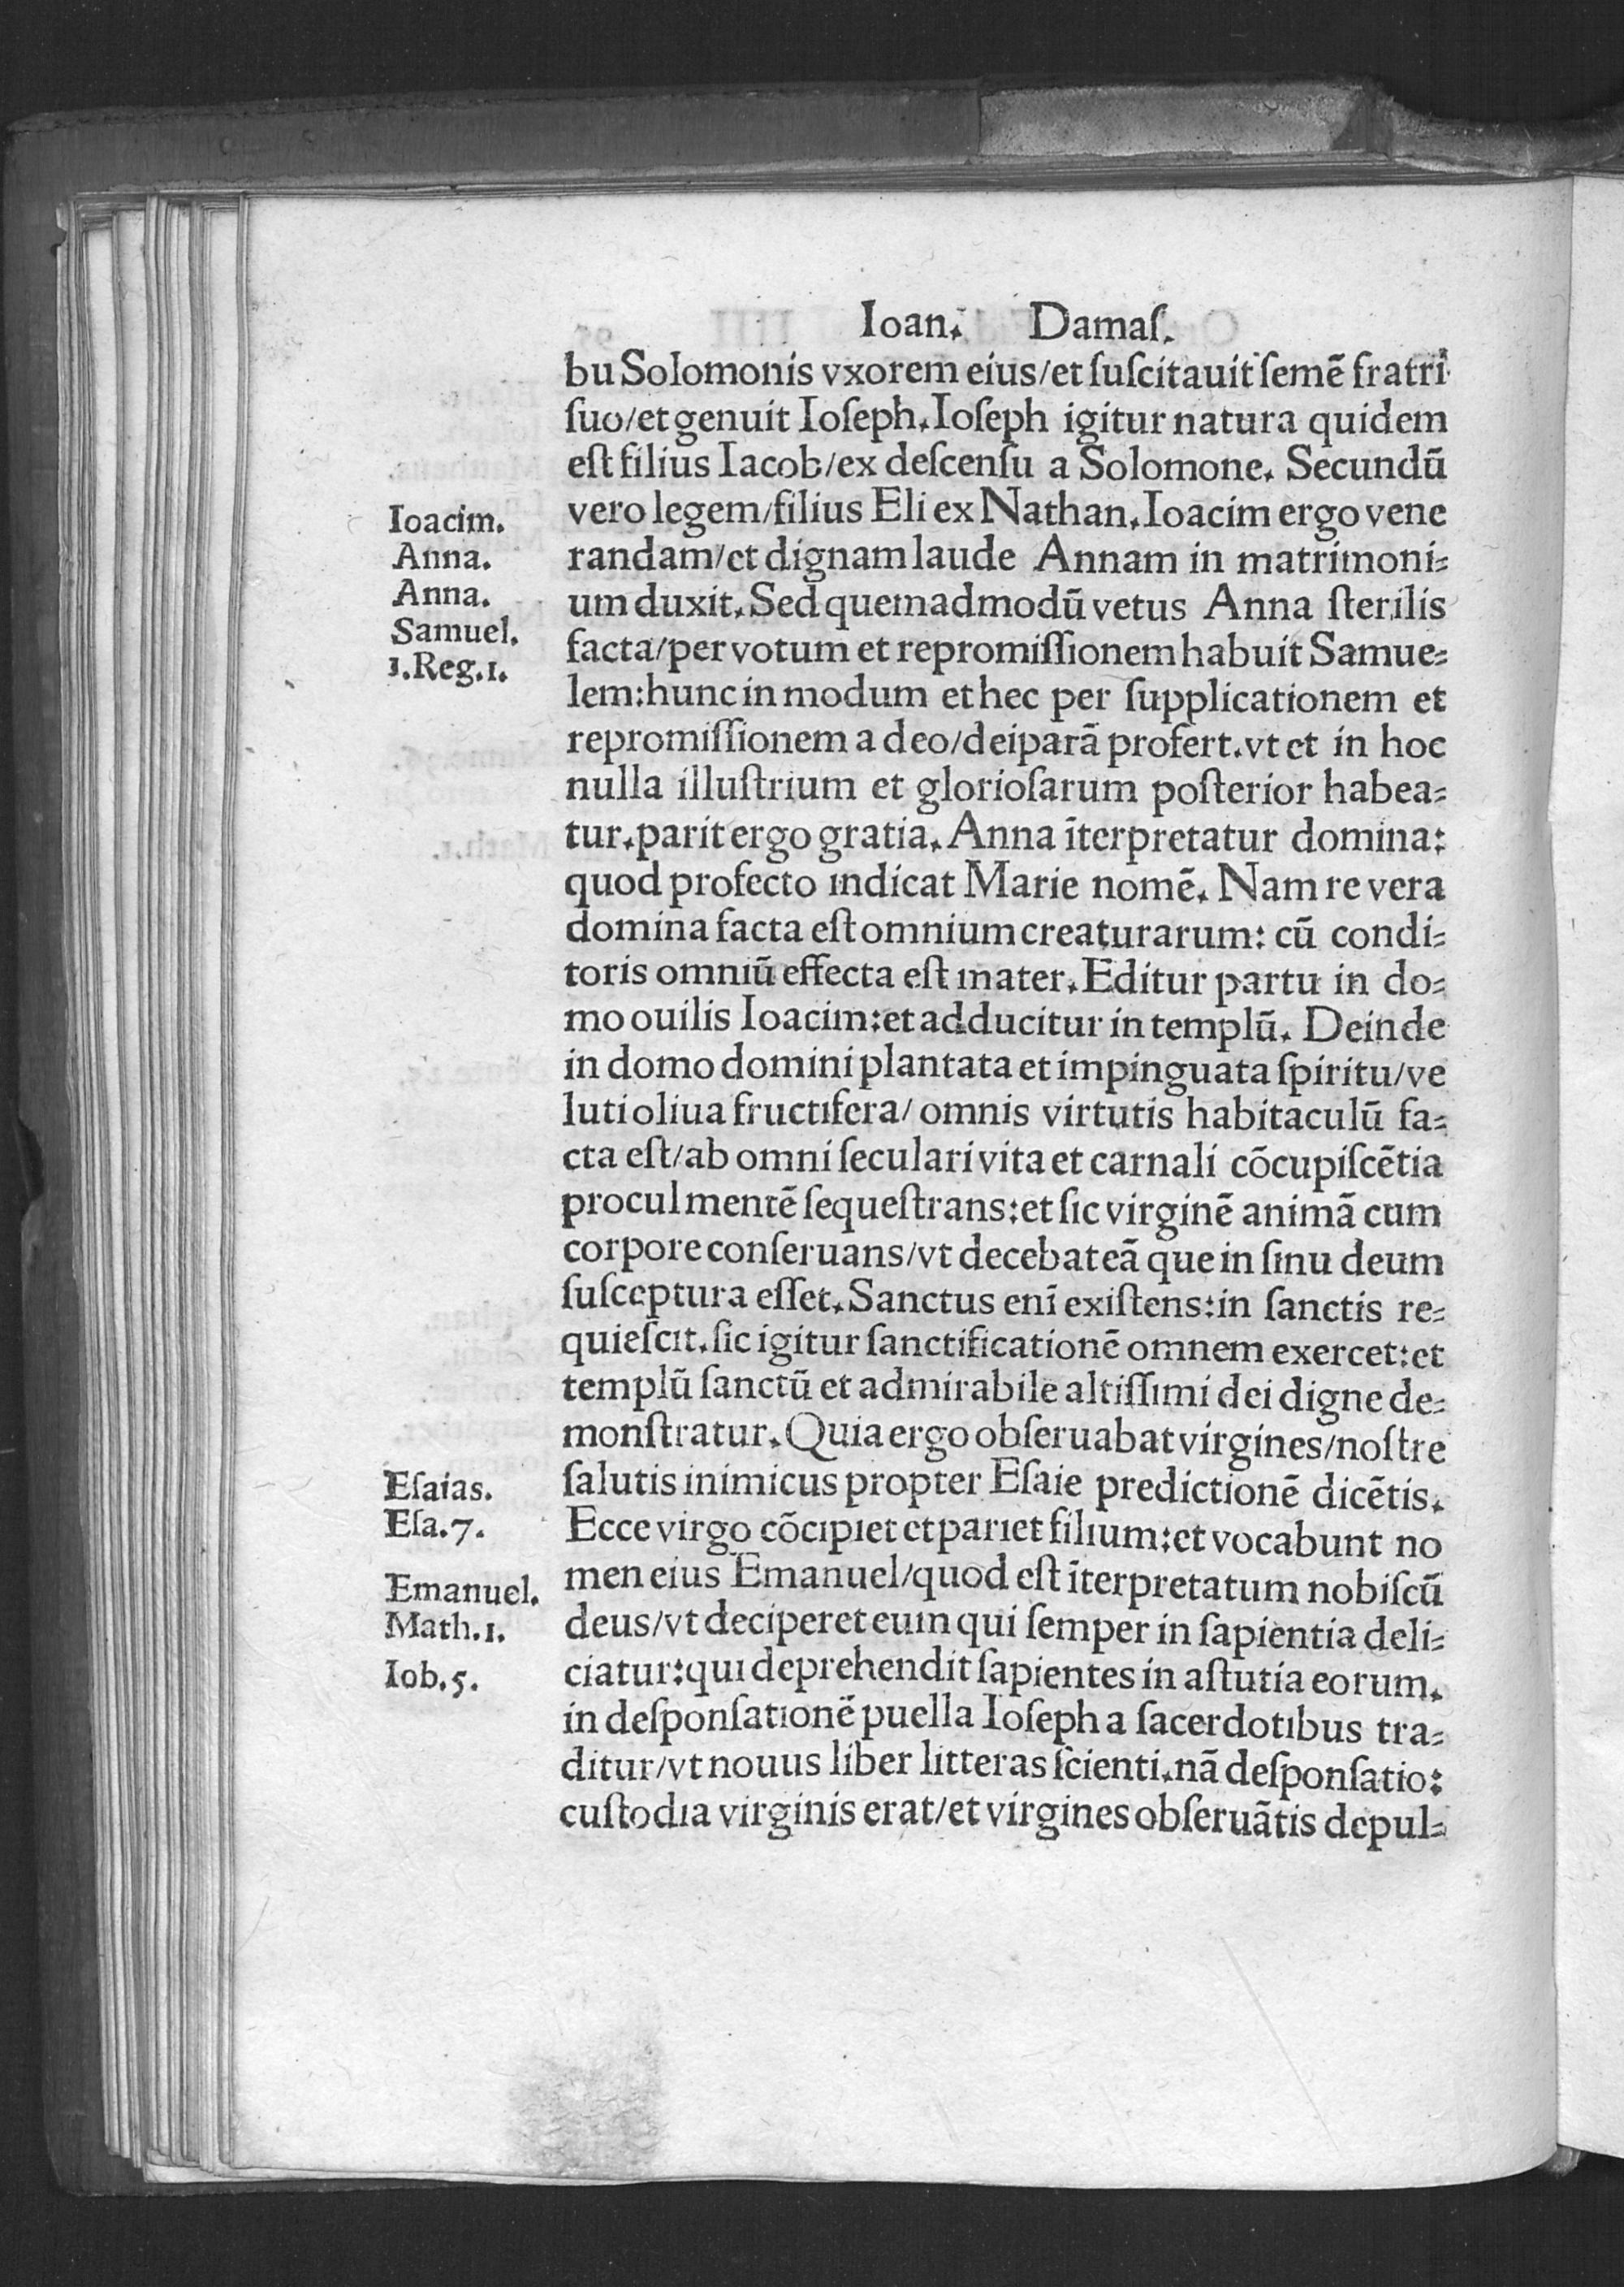 Ioan. Damaſ.
bu Solomonis vxorem eius/et ſuſcitauit ſemē fratri
ſuo/et genuit Ioſeph. Ioſeph igitur natura quidem
eſt filius Iacob/ex deſcenſu a Solomone. Secundū
vero legem/filius Eli ex Nathan. Ioacim ergo vene
randam/et dignam laude Annam in matrimoni=
um duxit. Sed quemadmodū vetus Anna ſterilis
facta/per votum et repromiſſionem habuit Samue=
lem:hunc in modum et hec per ſupplicationem et
repromiſſionem a deo/deiparā profert. vt et in hoc
nulla illuſtrium et glorioſarum poſterior habea=
tur. parit ergo gratia. Anna īterpretatur domina:
quod profecto indicat Marie nomē. Nam re vera
domina facta eſt omnium creaturarum: cū condi=
toris omniū effecta eſt mater. Editur partu in do=
mo ouilis Ioacim:et adducitur in templū. Deinde
in domo domini plantata et impinguata ſpiritu/ve
luti oliua fructifera/omnis virtutis habitaculū fa=
cta eſt/ab omni ſeculari vita et carnali cōcupiſcētia
procul mentē ſequeſtrans:et ſic virginē animā cum
corpore conſeruans/vt decebat eā que in ſinu deum
ſuſceptura eſſet. Sanctus enī exiſtens:in ſanctis re=
quieſcit. ſic igitur ſanctificationē omnem exercet:et
templū ſanctū et admirabile altiſſimi dei digne de=
monſtratur. Quia ergo obſeruabat virgines/noſtre
ſalutis inimicus propter Eſaie predictionē dicētis.
Ecce virgo cōcipiet et pariet filium:et vocabunt no
men eius Emanuel/quod eſt īterpretatum nobiſcū
deus/vt deciperet eum qui ſemper in ſapientia deli=
ciatur:qui deprehendit ſapientes in aſtutia eorum.
in deſponſationē puella Ioſeph a ſacerdotibus tra=
ditur/vt nouus liber litteras ſcienti. nā deſponſatio:
cuſtodia virginis erat/et virgines obſeruātis depul=
Ioacim.
Anna.
Anna.
Samuel.
1.Reg.1.
Eſaias.
Eſa.7.
Emanuel.
Math.1.
Iob.5.